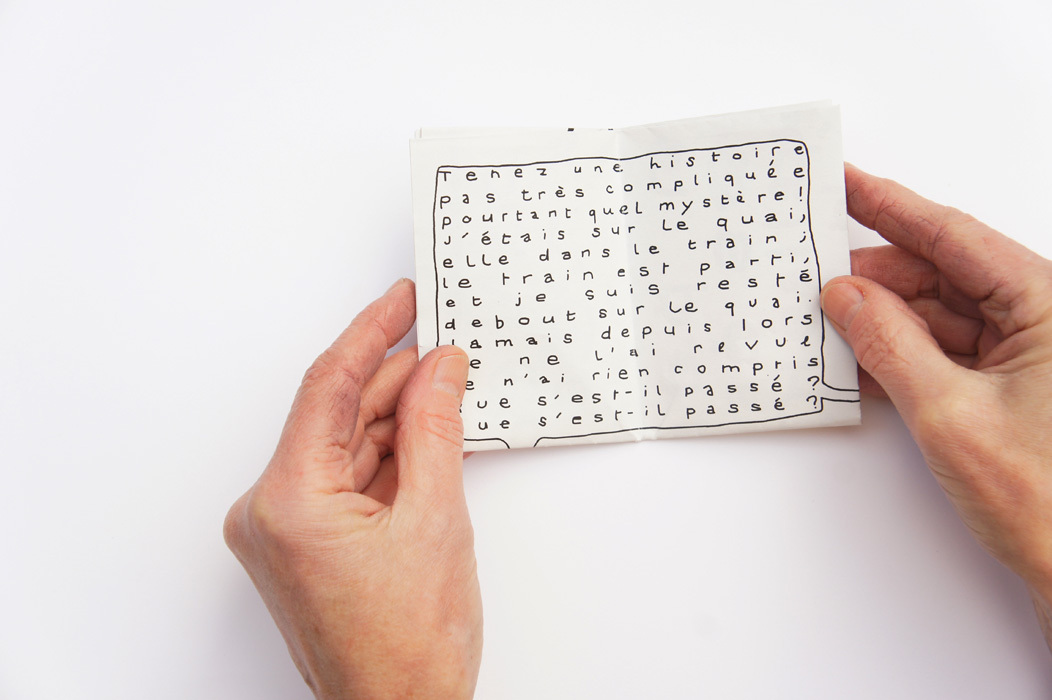 Tenez une histoire
pas très compliquée
pourtant quel mystère!
j'étais sur le quai,
elle dans le train ;
le train est parti,
et je suis resté
debout sur le quai.
jamais depuis lors
e ne l'ai revue
e n'ai rien compris
ue s'est-il passé ?
ue s'est-il passé ?